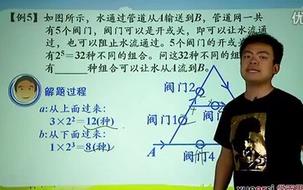 【例5】如图所示，水通过管道从A输送到B，管道网一共
有5个阀门，阀门可以是开或关，即可以让水流通
过，也可以阻止水流通过。5个阀门的开或关
有2⁵=32种不同的组合。问这32种不同的
有____种组合可以让水从A流到B。
解题过程
a:从上面过来:
3×2²=12(种)
b:从下面过来:
1×2³=8(种)
阀门2
阀门1
阀门4
A